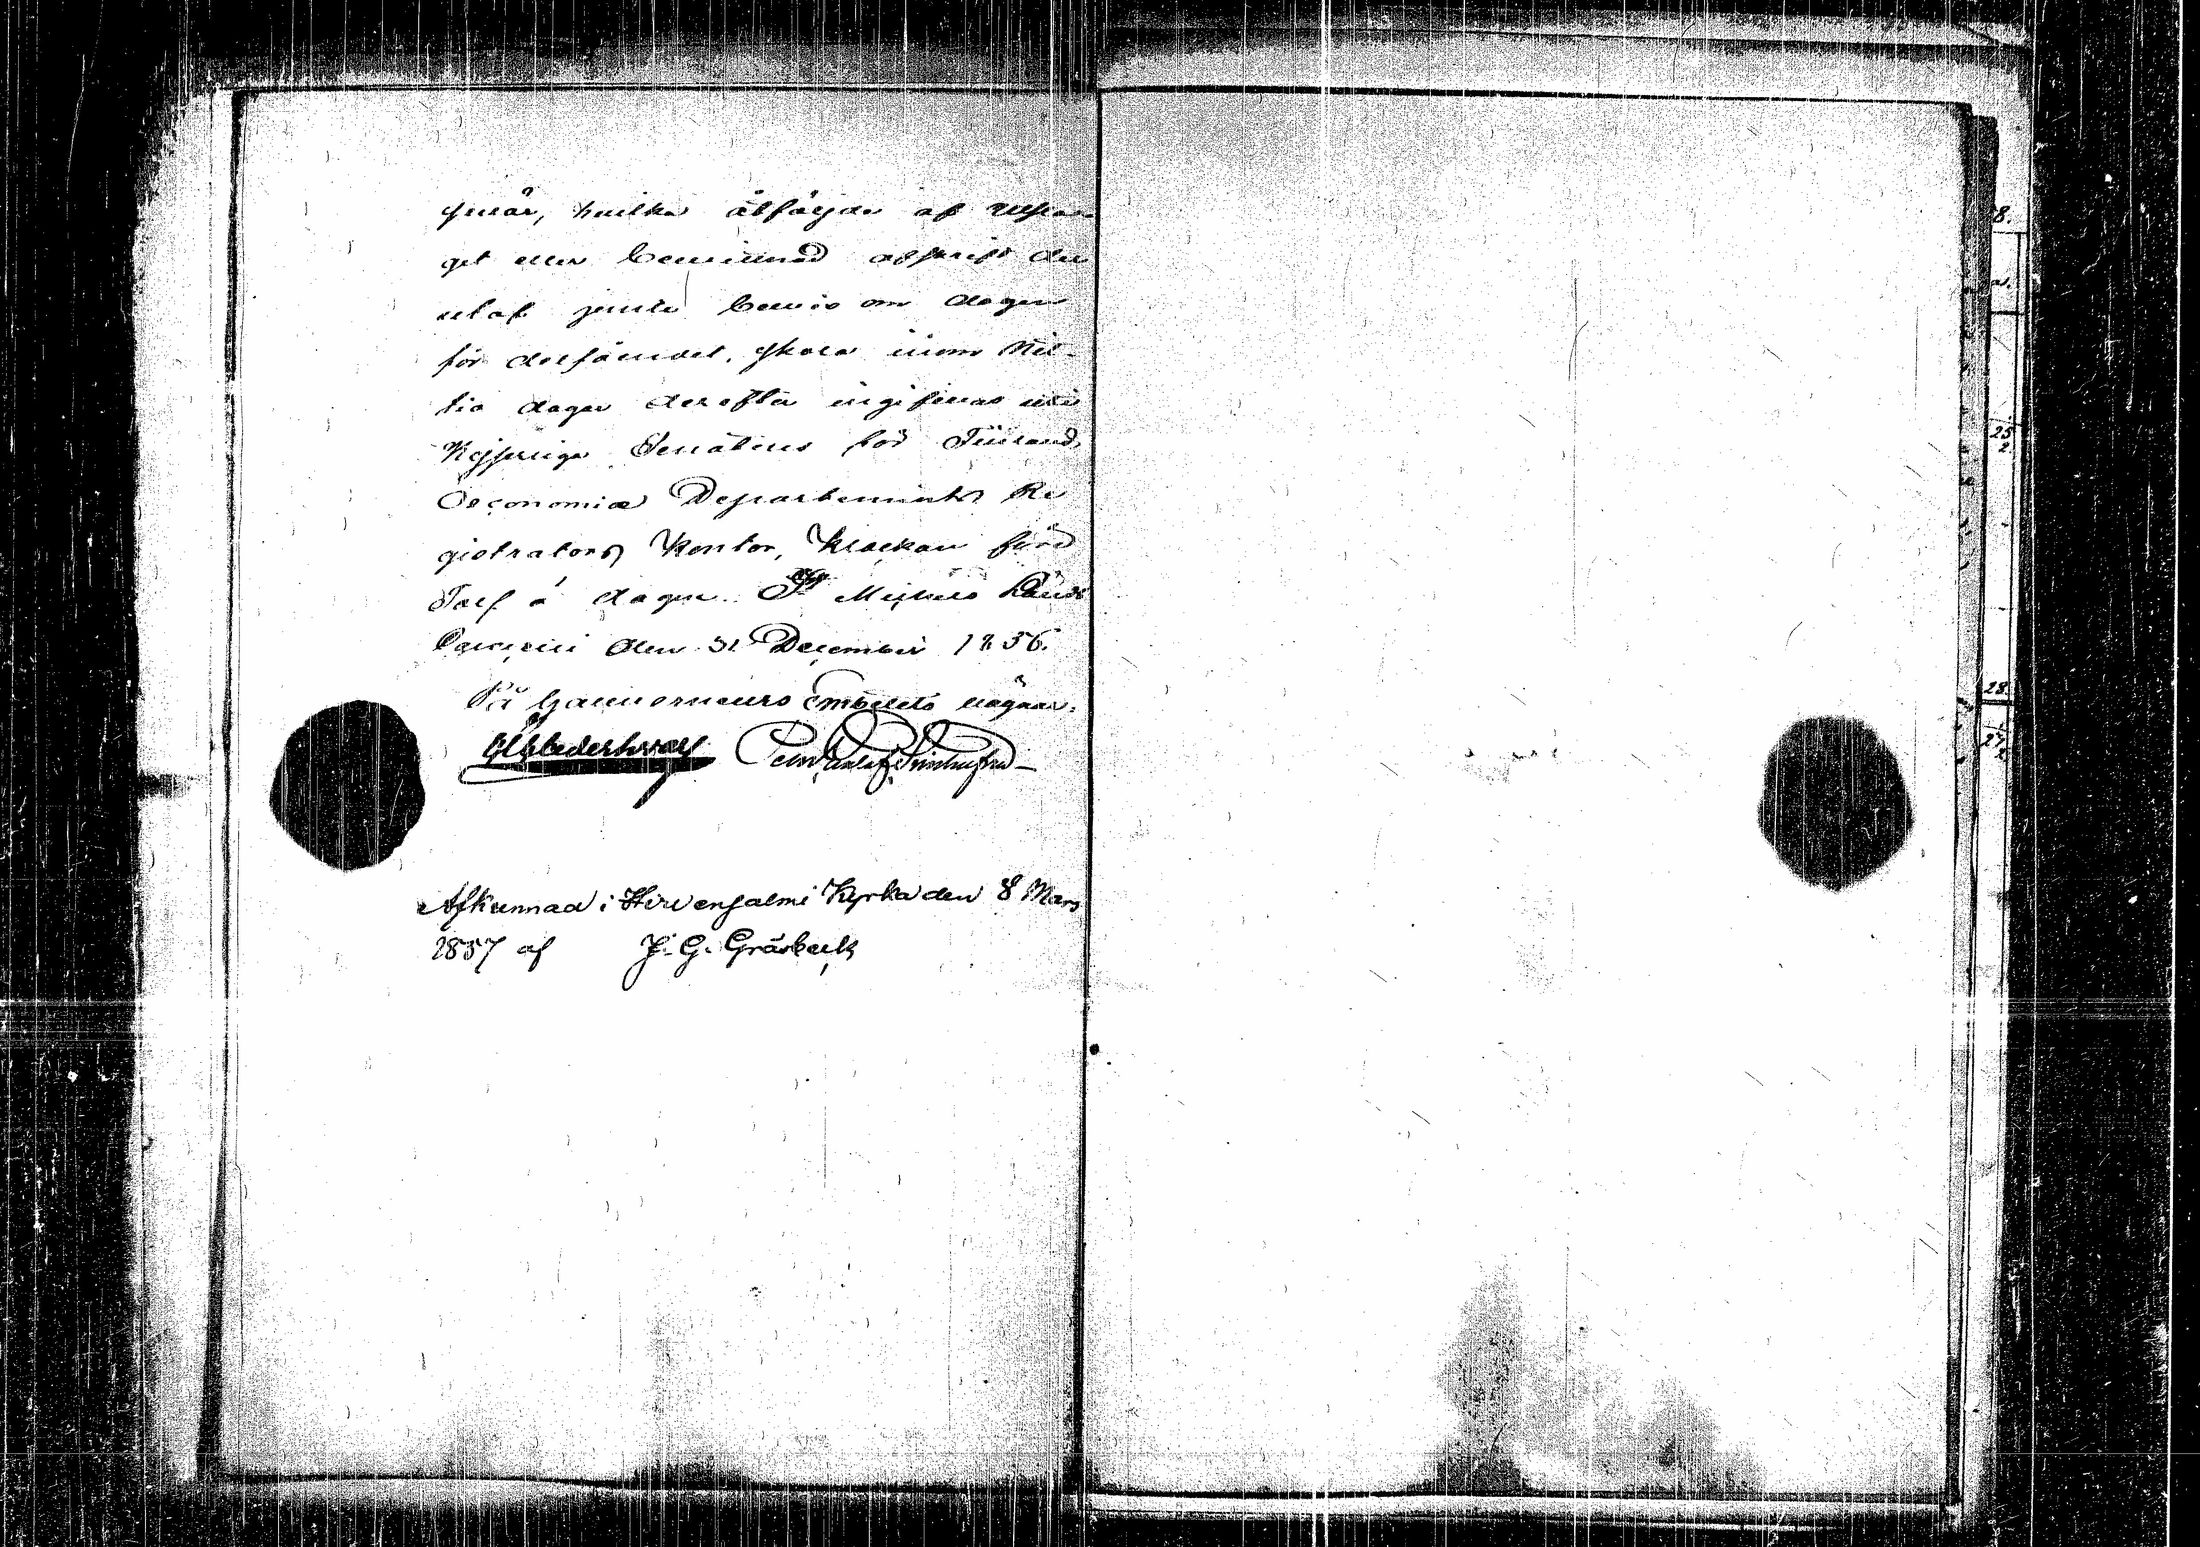 besvär, hvilka åtföljde af Utsla-
get eller bevittnad afskrift der
utaf jemte bevis om dagen
för delfåendet, skola inom Net-
tio dagar derefter ingifvas uti
Kejserliga Senatens för Finland
Oeconomiæ Departements Re
gistrators Kontor, klockan förd
Tolf å dagen. St Michels Lands
Cancelli den 31 December 1836.
På Gouverneurs Embetets vägnar:
Afkunnad i Hirvensalmi Kyrka den 8 Mars
1837 af J. G. Gråsbeck
28.
25
2
28.
27